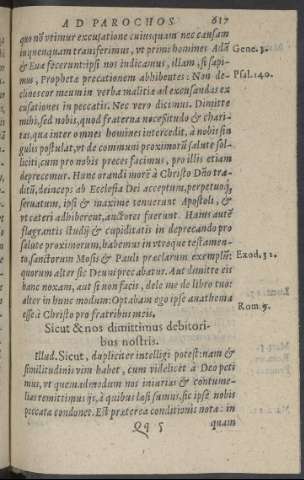 AD PAROCHOS. 617
quo nō vtimur excusatione cuiusquam: nec causam
in quenquam transferimus, vt primi homines Adā Gene. 3.
& Eua fecerunt: ipsi nos indicamus, illam, si sapi-
mus, Propheta precationem adhibentes: Non de- Psal. 140.
clines cor meum in verba malitiæ ad excusandas ex
cusationes in peccatis. Nec vero dicimus. Dimitte
mihi, sed nobis, quod fraterna necessitudo & chari-
tas, quæ inter omnes homines intercedit, à nobis sin
gulis postulat, vt de communi proximorū salute sol-
liciti, cum pro nobis preces facimus, pro illis etiam
deprecemur. Hunc orandi morē à Christo Dño tra-
ditū, deinceps ab Ecclesia Dei acceptum, perpetuoq́,
seruatum, ipsi & maximè tenuerunt Apostoli, &
vt cæteri adhiberent, auctores fuerunt. Huius autē
flagrantis studij & cupiditatis in deprecando pro
salute proximorum, habemus in vtroque testamen-
to, sanctorum Mosis & Pauli præclarum exemplū: Exod. 32.
quorum alter sic Deum precabatur. Aut dimitte eis
hanc noxam, aut si non facis, dele me de libro tuo:
alter in hunc modum: Optabam ego ipse anathema Rom. 9.
esse à Christo pro fratribus meis.
Sicut & nos dimittimus debitori-
bus nostris.
Illud, Sicut, dupliciter intelligi potest: nam &
similitudinis vim habet, cum videlicet à Deo peti
mus, vt quemadmodum nos iniurias & contume-
lias remittimus ijs, à quibus læsi sumus, sic ipse nobis
peccata condonet. Est præterea conditionis nota: in
Qq 5 quam